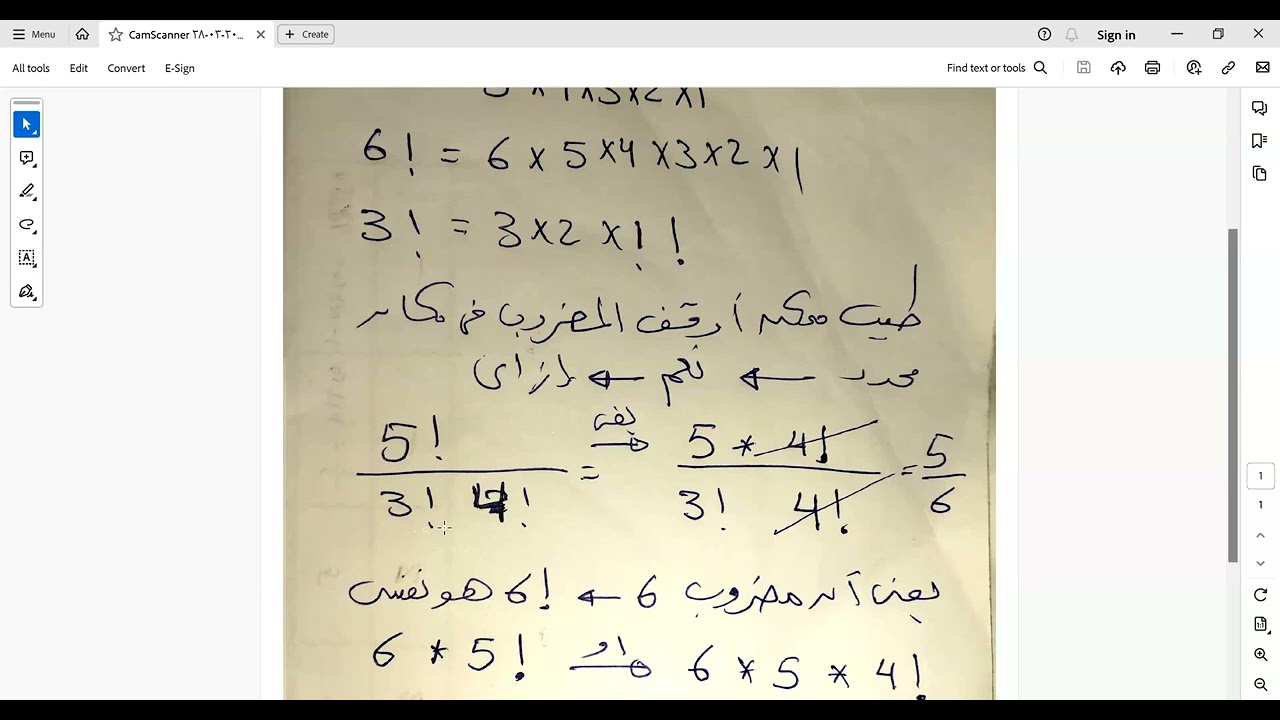 Menu
CamScanner ٢٨-٠٣-٢٠...
Create
Sign in
All tools Edit Convert E-Sign
Find text or tools
6! = 6 × 5 × 4 × 3 × 2 × 1
3! = 3 × 2 × 1!!
طيب ممكن أوقف المضروب في مكان
محدد ← نعم ← إزاى
5! / 3! 4! = يعنى → 5 * 4! / 3! 4! = 5/6
يعنى آن مضروب 6 ← 6! هو نفس
6 * 5! او → 6 * 5 * 4!
1
1